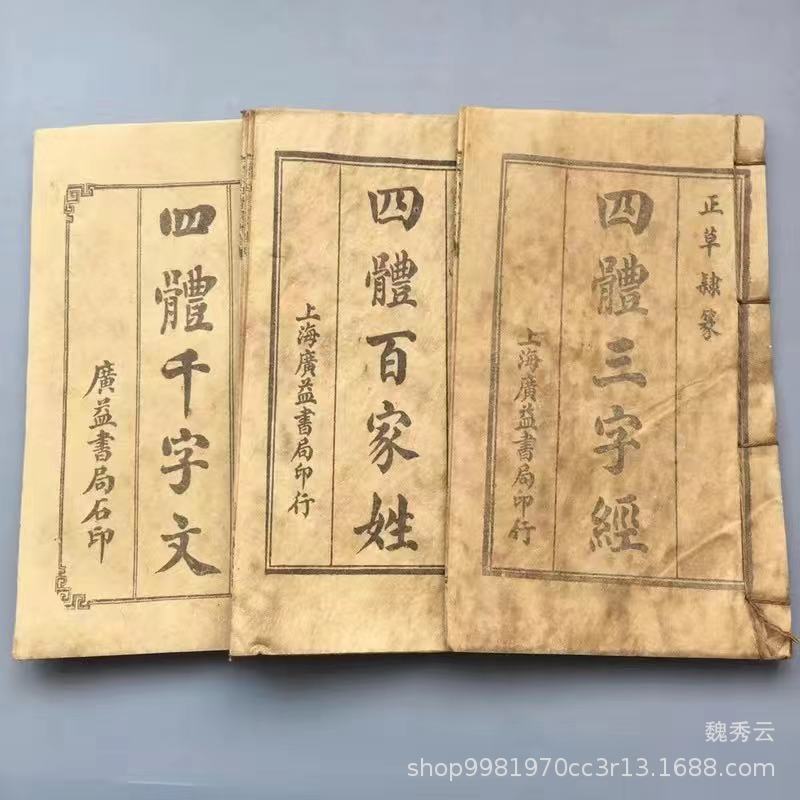 正草隸篆
四體三字經
上海廣益書局印行
四體百家姓
上海廣益書局印行
四體千字文
廣益書局石印
魏秀云
shop9981970cc3r13.1688.com